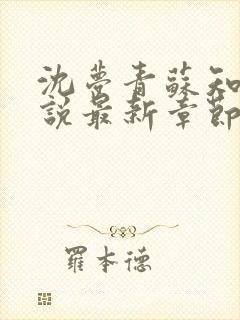 沈夢青蘇知
說最新章節
羅本德